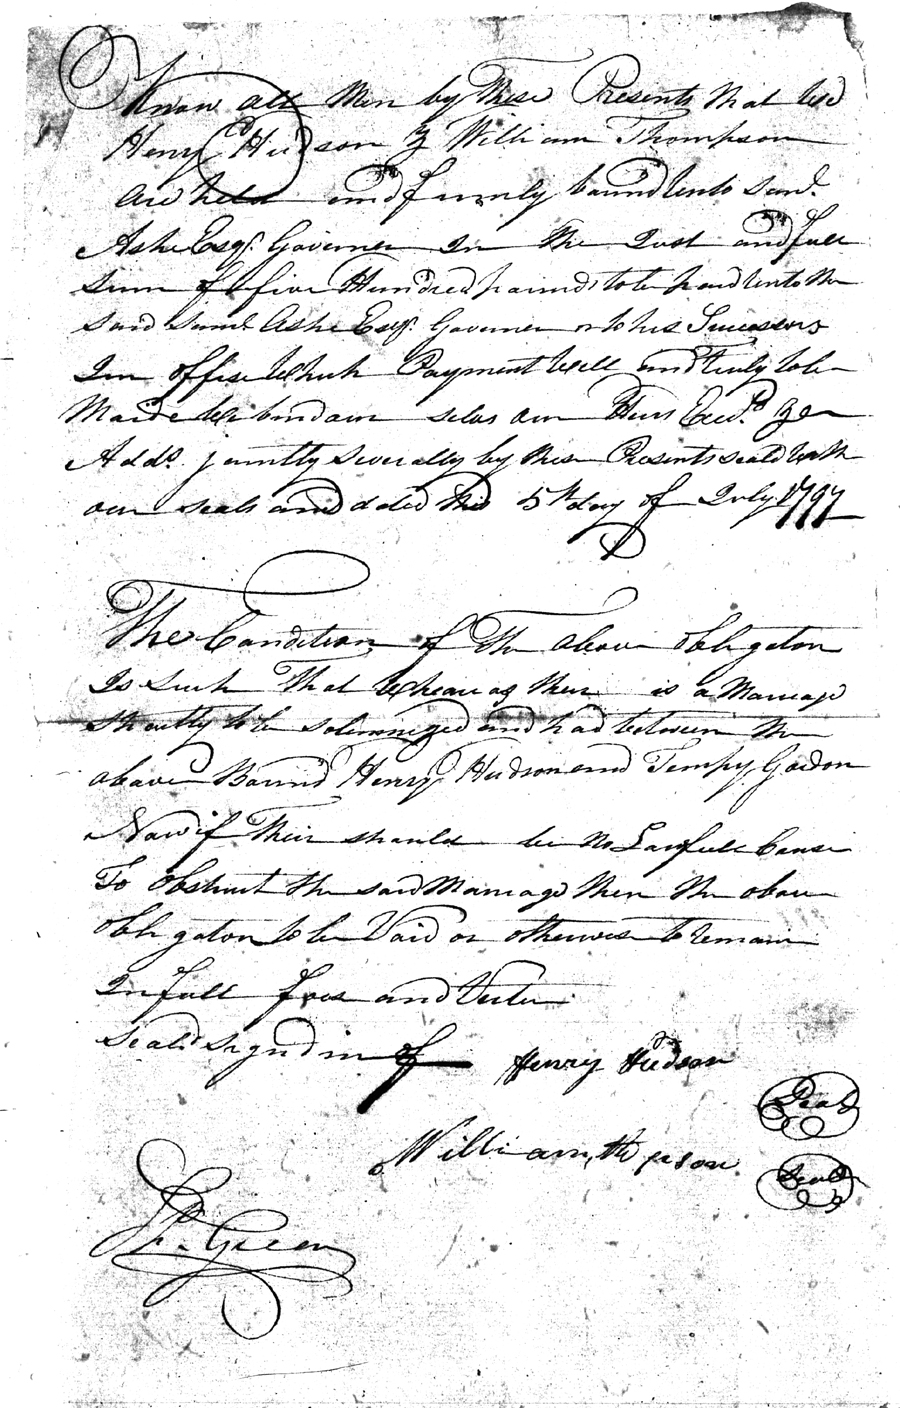 Know all Men by These Presents that We
Henry Hudson & William Thompson
are held and firmly bound Unto Saml.
Ashe Esqr. Governer In the Just and full
Sum of five Hundred pounds to be paid Unto the
said Saml. Ashe Esqr. Governer or to his Sucessors
Inn offise Which Payment Well and truly to be
Maide We bind our selvs our Heirs Exed.
Adds. jointly severally by these Presents seald With
our seals and dated this 5th day of July 1797
The Condition of The above obligaton
Is Such That Whearas there is a Marriage
Shortly to be solemnized and had between the
above Bound Henry Hudson and Tempy Gordon
Now if Their should be No Lawfull Cause
To obstruct the said Marriage then the above
obligaton to be Void or otherwise to remain
In full fors and Vertu
Seald signd in of Henry Hudson
Seal
William thopson
Seal
Green